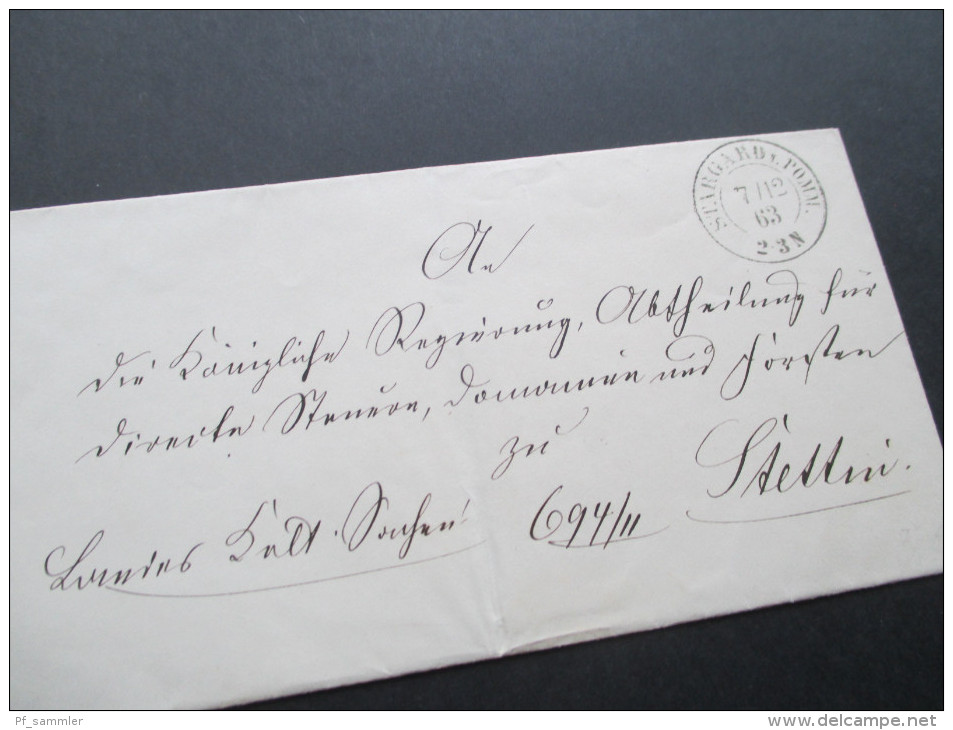 STARGARD i. POMM.
7/12
63
2-3 N
An
die Königliche Regierung, Abtheilung für
directe Steuern, Domainen und Forsten
zu
Stettin.
Landes Kult. Sachen
694/11
Pf_sammler
www.delcampe.net